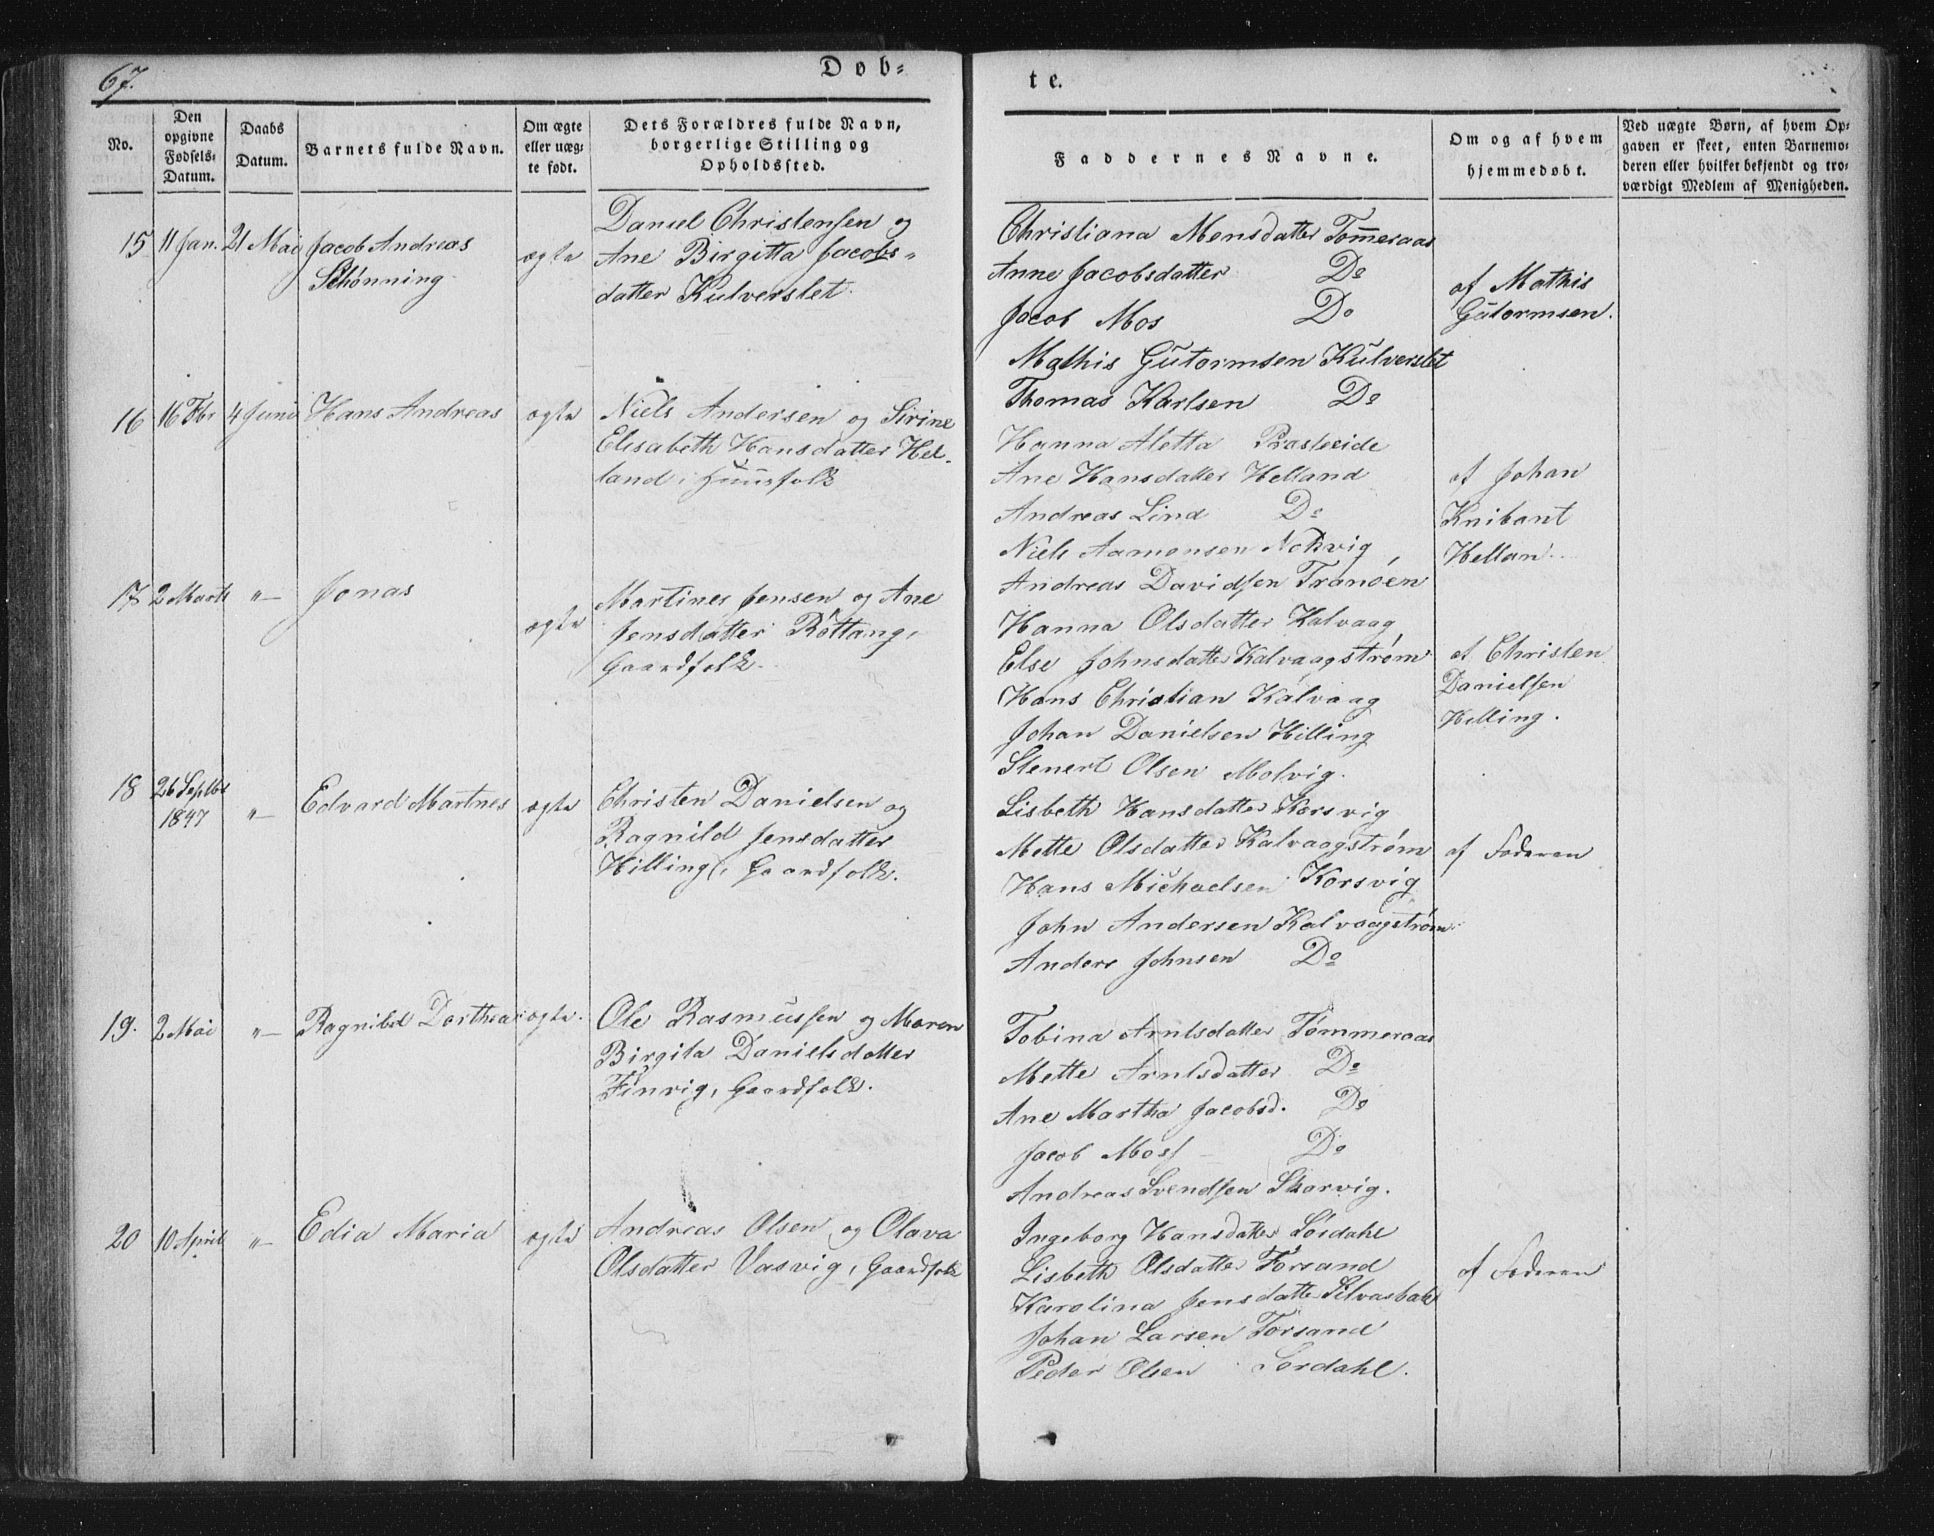 67.
Døb-
te.
No.
Den opgivne Fødsels-Datum.
Daabs Datum.
Barnets fulde Navn.
Om ægte eller uægte født.
Dets Forældres fulde Navn, borgerlige Stilling og Opholdssted.
Faddernes Navne.
Om og af hvem hjemmedøbt.
Ved uægte Børn, af hvem Opgaven er skeet, enten Barnemoderen eller hvilket bekjendt og troværdigt Medlem af Menigheden.
15 11 Jan. 21 Mai Jacob Andreas
Schönning
ægte
Daniel Christensen og
Ane Birgitta Jacobs-
datter Kulverslet.
Christiana Monsdatter Tommeraas
Anne Jacobsdatter Do
Jacob Mos Do
Mathis Gutormsen Kulverslet
Thomas Karlsen Do
af Mathis
Gutormsen.
16 16 Fbr 4 Juni Hans Andreas
ægte
Niels Andersen og Sirine
Elisabeth Hansdatter Hel-
land, Huusfolk
Hanna Aletta
Ane Hansdatter Helland
Andreas Lind Do
Niels Aamonsen
Andreas Davidsen Tranøen
af Johan
Knibant
Hellan
17 2 Marts " Jonas
ægte
Martines Jensen og Ane
Jensdatter Röttang,
Gaardfolk.
Hanna Olsdatter Kalvaag
Else Johnsdatter Kalvaagstrøm
Hans Christian Kalvaag
Johan Danielsen Hilling
Stenert Olsen Molvig.
af Christen
Danielsen
Hilling.
18 26 Septbr
1847 " Edvard Martnes
ægte
Christen Danielsen og
Ragnild Jensdatter
Hilling, Gaardfolk.
Lisbeth Hansdatter Korsvig
Mette Olsdatter Kalvaagstrøm
Hans Michaelsen Korsvig
John Andersen Kalvaagstrøm
Anders Johnsen Do
af Faderen
19. 2 Mai " Ragnild Dorthea
ægte.
Ole Rasmussen og Maren
Birgita Danielsdatter
Finvig, Gaardfolk.
Tobina Arntsdatter Tömmeraas
Mette Arntsdatter Do
Ane Martha Jacobsd. Do
Jacob Moss Do
Andreas Svendsen Skarvig.
20 10 April " Edia Maria
ægte
Andreas Olsen og Olava
Olsdatter Vasvig, Gaardfolk
Ingeborg Hansdatter Sördahl
Lisbeth Olsdatter Forsand
Karolina Jensdatter
Johan Larsen Forsand
Peder Olsen Sördahl.
af Faderen